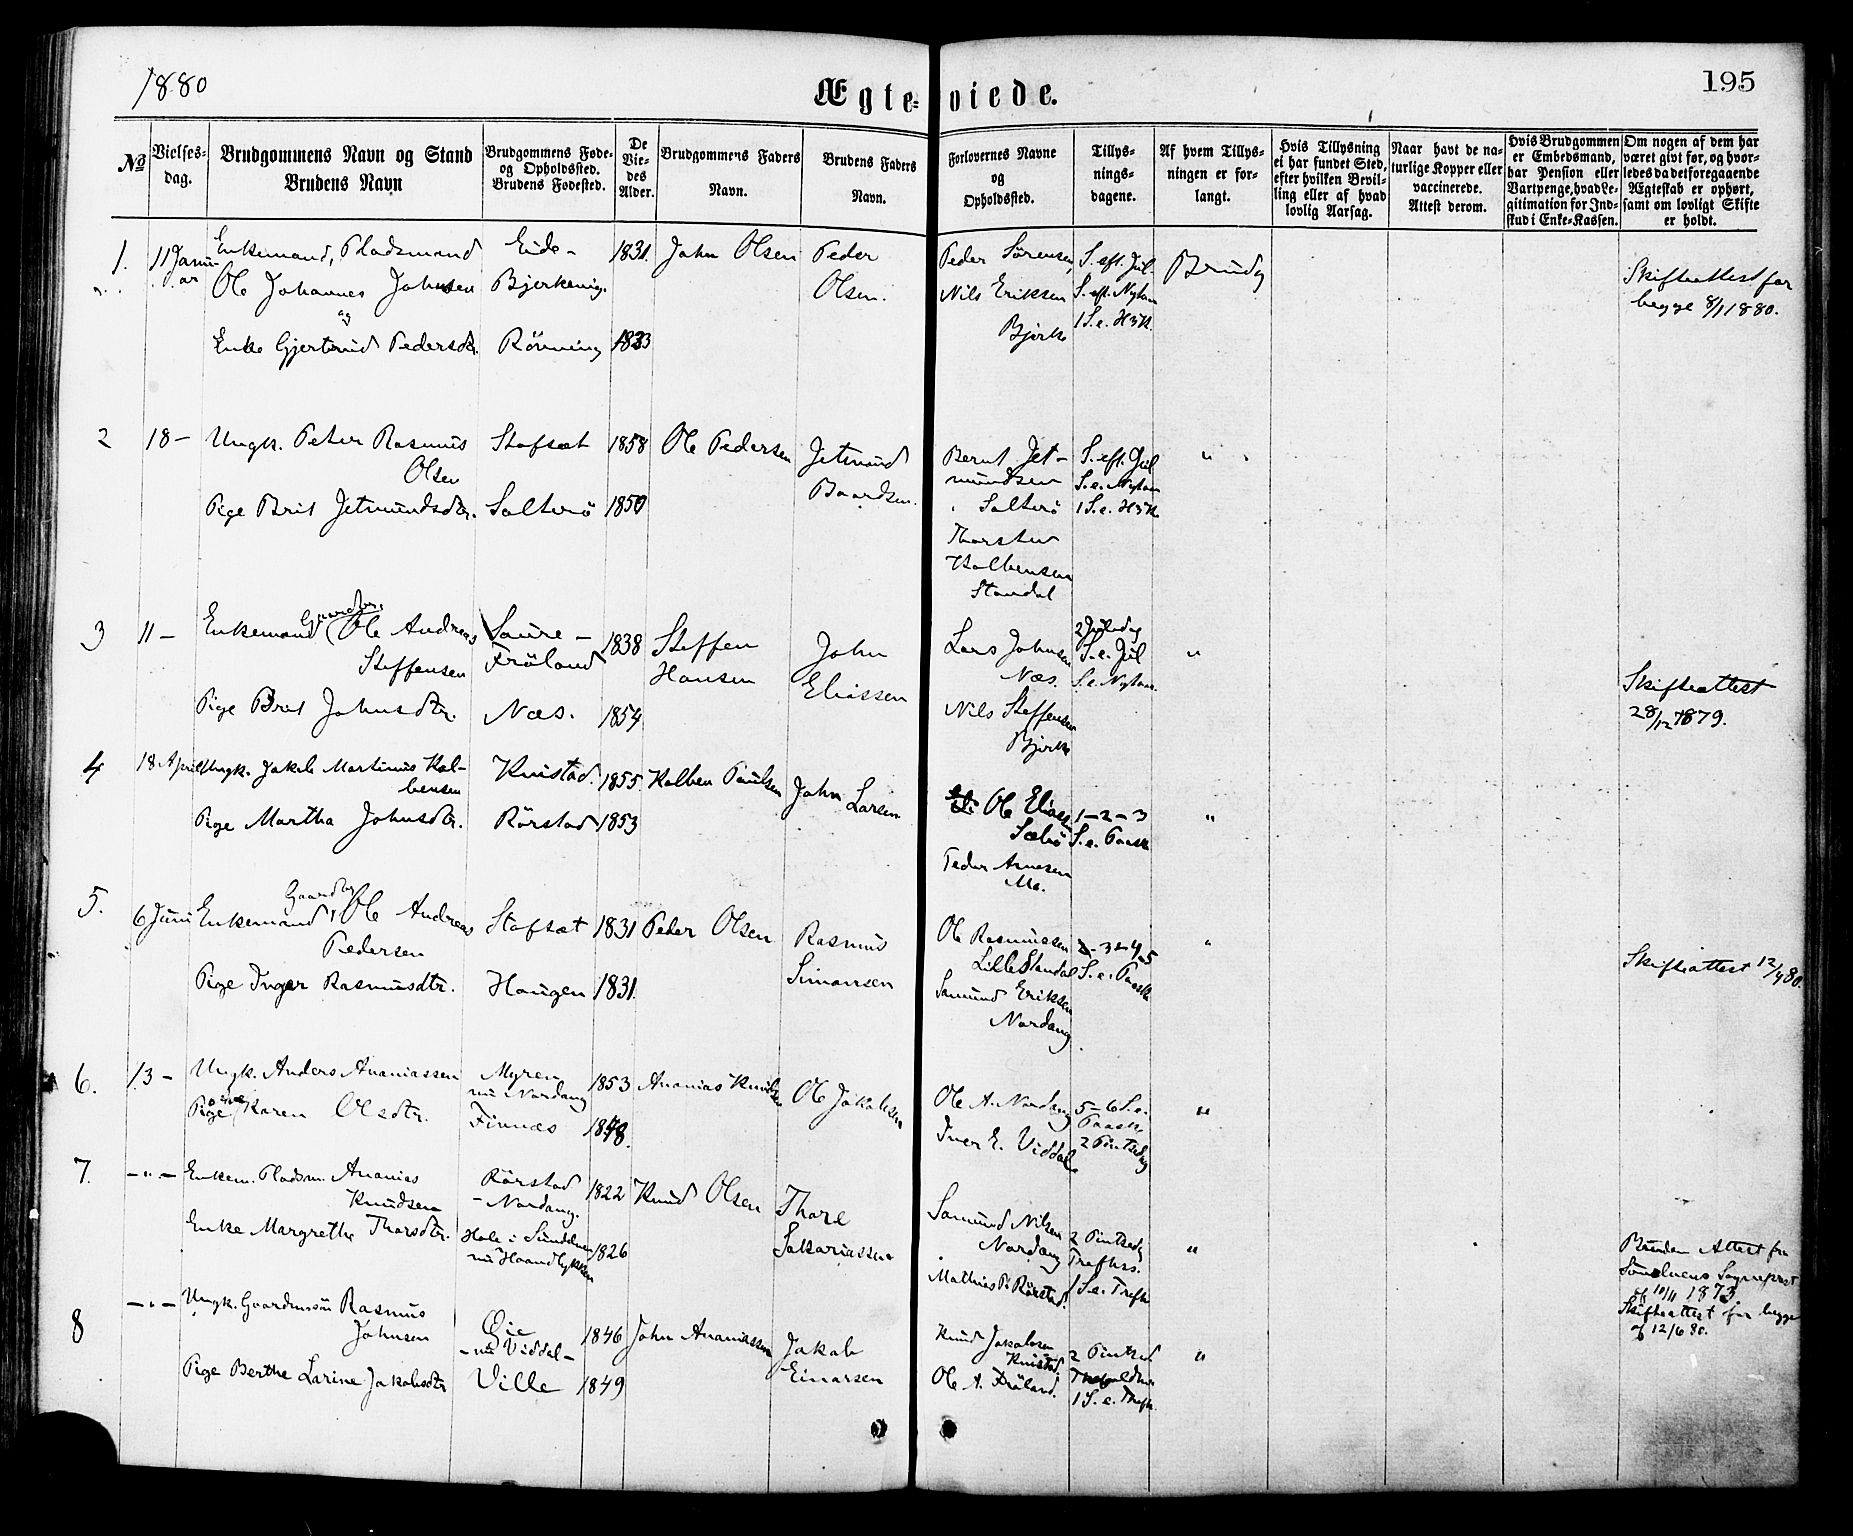 1880
Ægte=viede.
195
No
Vielses-
dag.
Brudgommens Navn og Stand
Brudens Navn
Brudgommens Føde-
og Opholdssted.
Brudens Fødested.
De
Vie-
des
Alder.
Brudgommens Faders
Navn.
Brudens Faders
Navn.
Forlovernes Navne
og
Opholdssted.
Tillys-
nings-
dagene.
Af hvem Tillys-
ningen er for-
langt.
Hvis Tillysning
ei har fundet Sted,
efter hvilken Bevil-
ling eller af hvad
lovlig Aarsag.
Naar havt de na-
turlige Kopper eller
vaccinerede.
Attest derom.
Hvis Brudgommen
er Embedsmand,
har Pension eller
Vartpenge, hvad Le-
gitimation for Ind-
skud i Enke-Kassen.
Om nogen af dem har
været givt før, og hvor-
ledes da det foregaaende
Ægteskab er ophørt,
samt om lovligt Skifte
er holdt.
1.
11 Janu-
ar
Enkemand, Pladsmand
Ole Johannes Johnsen
og
Enke Gjertrud Pedersdtr.
Eide-
Bjerkevig.
Rönning
1831.
1833
John Olsen
Peder
Olsen.
Peder Sørensen,
Nils Eriksen
Bjørke
S. eft. Jul.
S. eft. Nytaar
1 S. e. H3K.
Brudg
Skifteattest for
begge 8/1 1880.
2
18 -
Ungk. Peter Rasmus
Olsen
Pige Brit Jetmundsdtr.
Stafsæt
Salterö
1858
1850
Ole Pedersen
Jetmund
Baardsen.
Bernt Jet-
mundsen
Salterö
Thorsten
Kolbensen
Standal
S. eft. Jul
S. e. Nytaar
1 S. e. H3K
"
3
11 -
Enkemand, Gaardbr. Ole Andreas
Steffensen
Pige Brit Johnsdtr.
Saure -
Fröland
Næs.
1838
1854
Steffen
Hansen
John
Eliassen
Lars Johnsen
Næs.
Nils Steffensen
Bjørke
2 Juledag
S. e. Jul
S. e. Nytaar.
"
Skifteattest
28/12 1879.
4
18 April
Ungk. Jakob Martinus Kol-
bensen
Pige Martha Johnsdtr.
Knistad.
Rörstad
1855.
1853
Kolben Paulsen
John Larsen
Ole Eliass.
Sæbö
Peder Arnesen
Mo.
1 - 2 - 3
S. e. Paask
"
5.
6 Juni
Enkemand, Gaardbr. Ole Andreas
Pedersen
Pige Inger Rasmusdtr.
Stafsæt
Haugen
1831
1831.
Peter Olsen
Rasmus
Simonsen
Ole Rasmussen
Lille Standal
Samund Eriksen
Nordang
3 - 4 - 5
S. e. Paask
"
Skifteattest 12/4 80.
6.
13 -
Ungk. Anders Ananiassen
Pige Karen Olsdtr.
Myren
nu Nordang
Finnæs
1853
1848.
Ananias Knudsen
Ole Jakobsen
Ole A. Nordang
Iver E. Viddal
5 - 6 S. e.
Paask.
2 Pintsedag
"
7.
- " -
Enkem. Pladsm. Ananias
Knudsen
Enke Margrethe Thorsdtr.
Rörstad
- Nordang.
Hole i Sundelven
nu Haandlykken
1822
1826
Knud Olsen
Thore
Sakariassen
Samund Nilsen
Nordang
Mathias P. Rörstad.
2 Pintsedg
Trefhs.
1 S. e. Trefh
"
Bruden Attest fra
Sunelvens Sogneprest
af 10/11 1873
Skifteattest for begge
af 12/6 80.
8
- " -
Ungk. Gaardmssön Rasmus
Johnsen
Pige Berthe Larine Jakobsdtr
Øie
- nu Viddal -
Ville
1846
1849
John Ananiassen
Jakob
Einarsen
Knud Jakobsen
Knistad
Ole A. Fröland.
2 Pintsd.
1 S. e. Trefh.
"